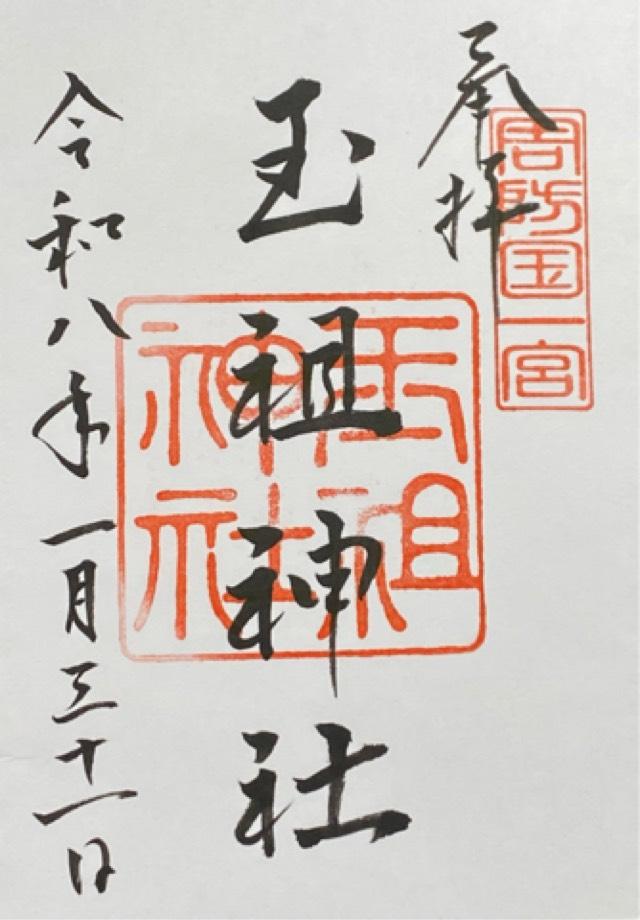 奉拝
周防国一宮
玉祖神社
玉祖神社
令和八年一月三十一日